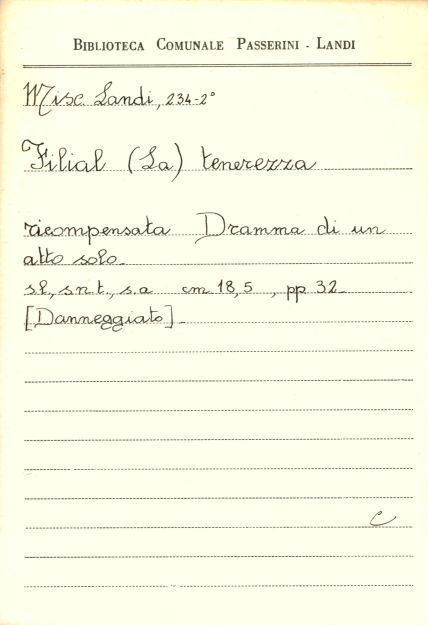 BIBLIOTECA COMUNALE PASSERINI - LANDI
Misc. Landi, 234-2°
Filial (La) tenerezza
ricompensata Dramma di un
atto solo.
s.l., s.n.t., s.a cm 18,5 , pp 32.
[Danneggiato].
C